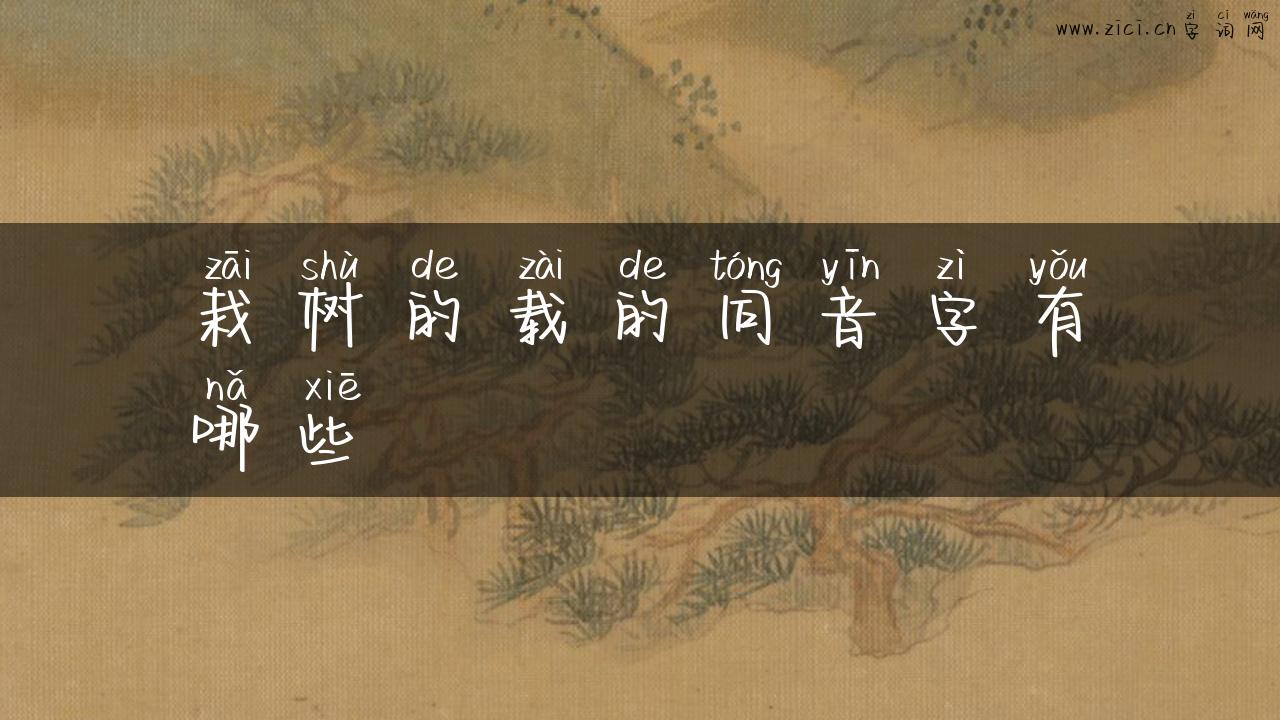 www.zici.cn zì cí wǎng
字词网
zāi shù de zài de tóng yīn zì yǒu
栽树的载的同音字有
nǎ xiē
哪些